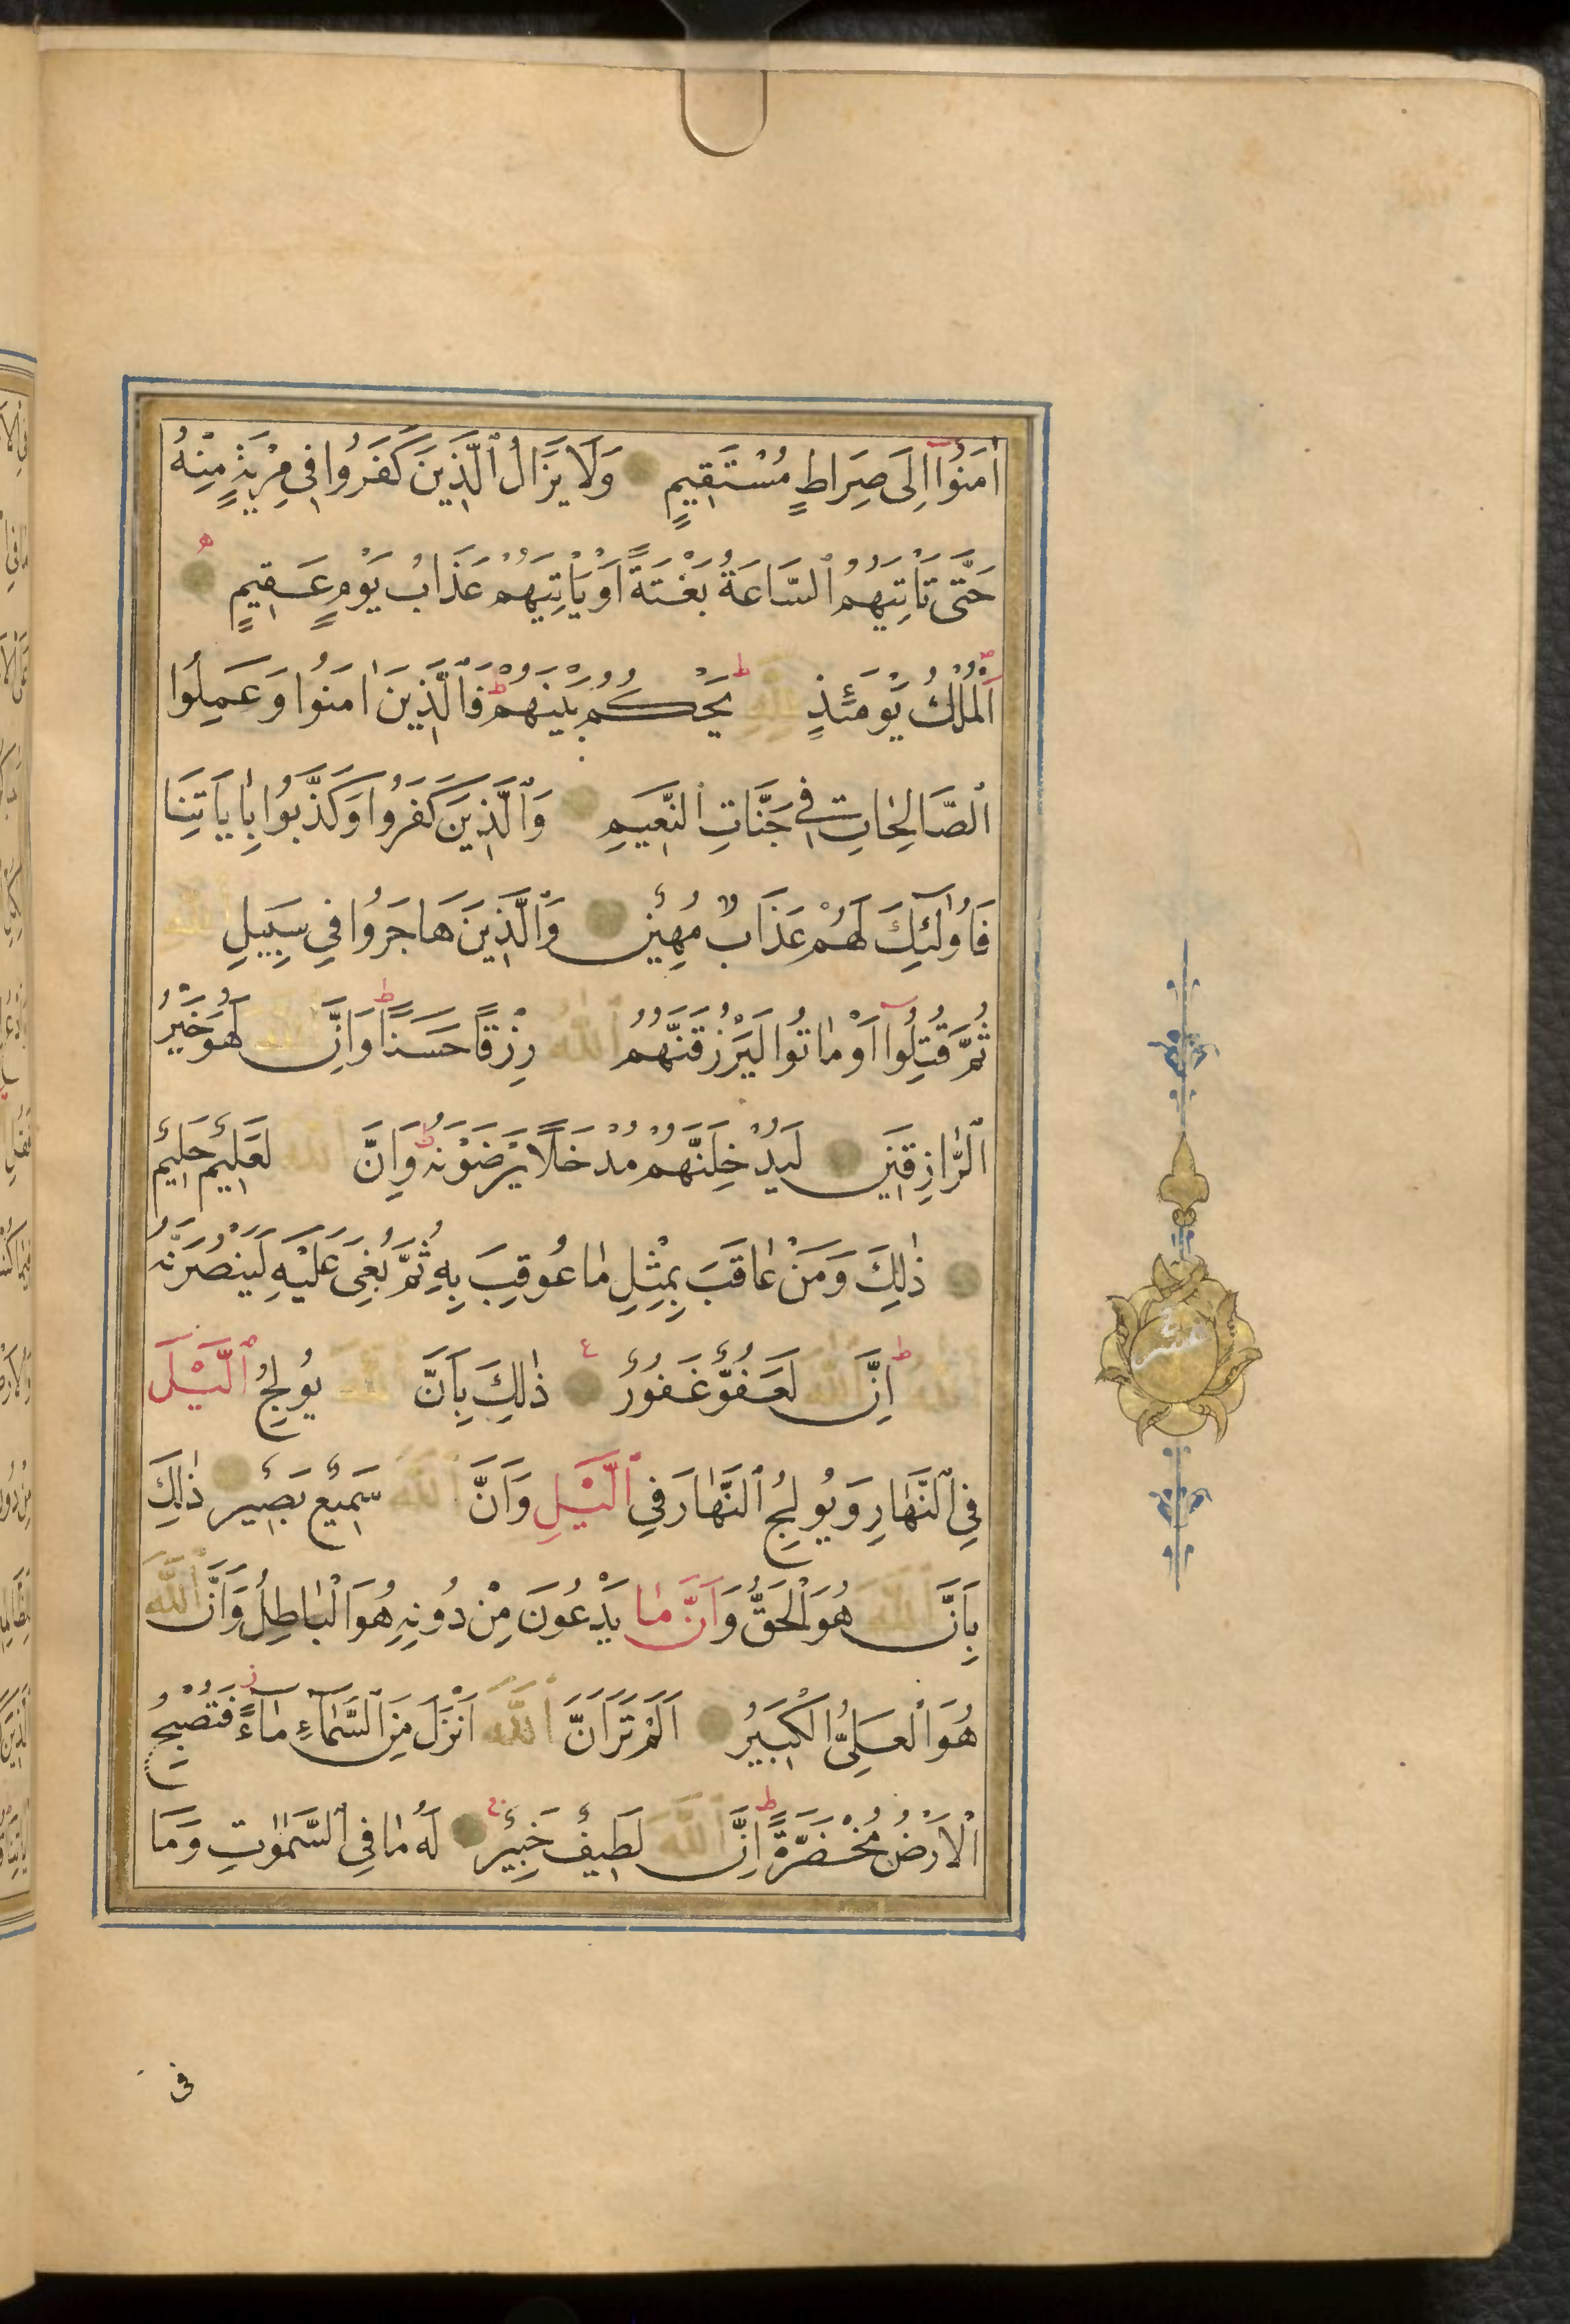 اٰمَنُوٓا اِلٰى صِرَاطٍ مُسْتَقِيمٍ وَلَا يَزَالُ ٱلَّذِينَ كَفَرُوا فِى مِرْيَةٍ مِنْهُ
حَتّٰى تَأْتِيَهُمُ ٱلسَّاعَةُ بَغْتَةً اَوْ يَأْتِيَهُمْ عَذَابُ يَوْمٍ عَقِيمٍ
اَلْمُلْكُ يَوْمَئِذٍ لِلّٰهِ يَحْكُمُ بَيْنَهُمْ فَٱلَّذِينَ اٰمَنُوا وَعَمِلُوا
ٱلصَّالِحَاتِ فِى جَنَّاتِ ٱلنَّعِيمِ وَٱلَّذِينَ كَفَرُوا وَكَذَّبُوا بِاٰيَاتِنَا
فَاُولٰٓئِكَ لَهُمْ عَذَابٌ مُهِينٌ وَٱلَّذِينَ هَاجَرُوا فِى سَبِيلِ ٱللّٰهِ
ثُمَّ قُتِلُوٓا اَوْ مَاتُوا لَيَرْزُقَنَّهُمُ ٱللّٰهُ رِزْقًا حَسَنًا وَاِنَّ ٱللّٰهَ لَهُوَ خَيْرُ
ٱلرَّازِقِينَ لَيُدْخِلَنَّهُمْ مُدْخَلًا يَرْضَوْنَهُ وَاِنَّ ٱللّٰهَ لَعَلِيمٌ حَلِيمٌ
ذٰلِكَ وَمَنْ عَاقَبَ بِمِثْلِ مَا عُوقِبَ بِهِ ثُمَّ بُغِىَ عَلَيْهِ لَيَنْصُرَنَّهُ
ٱللّٰهُ اِنَّ ٱللّٰهَ لَعَفُوٌّ غَفُورٌ ذٰلِكَ بِاَنَّ ٱللّٰهَ يُولِجُ ٱلَّيْلَ
فِى ٱلنَّهَارِ وَيُولِجُ ٱلنَّهَارَ فِى ٱلَّيْلِ وَاَنَّ ٱللّٰهَ سَمِيعٌ بَصِيرٌ ذٰلِكَ
بِاَنَّ ٱللّٰهَ هُوَ ٱلْحَقُّ وَاَنَّ مَا يَدْعُونَ مِنْ دُونِهِ هُوَ ٱلْبَاطِلُ وَاَنَّ ٱللّٰهَ
هُوَ ٱلْعَلِىُّ ٱلْكَبِيرُ اَلَمْ تَرَ اَنَّ ٱللّٰهَ اَنْزَلَ مِنَ ٱلسَّمَاءِ مَاءً فَتُصْبِحُ
ٱلْاَرْضُ مُخْضَرَّةً اِنَّ ٱللّٰهَ لَطِيفٌ خَبِيرٌ لَهُ مَا فِى ٱلسَّمٰوَاتِ وَمَا
فى